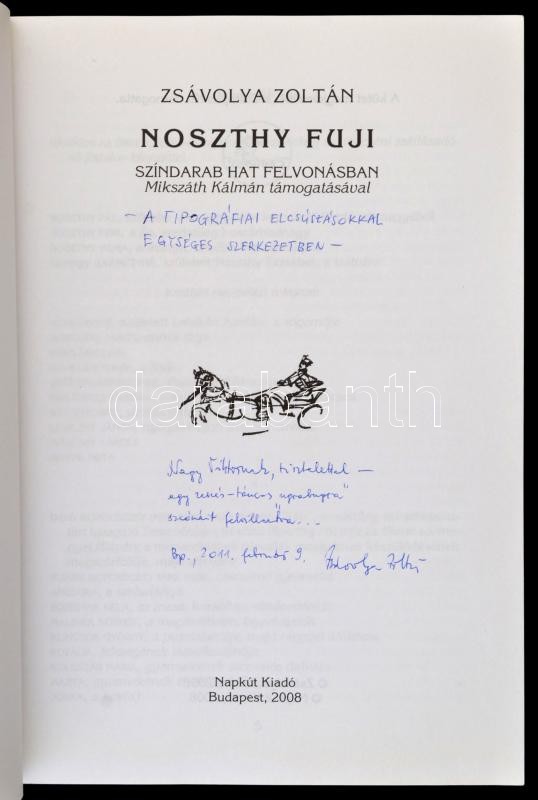 ZSÁVOLYA ZOLTÁN
NOSZTHY FUJI
SZÍNDARAB HAT FELVONÁSBAN
Mikszáth Kálmán támogatásával
– A TIPOGRÁFIAI ELCSÚSZÁSOKKAL
EGYSÉGES SZERKEZETBEN –
darabanth
Nagy Viktornak, tisztelettel –
egy zenés-táncos
Bp., 2011. február 9. Zsávolya Zoltán
Napkút Kiadó
Budapest, 2008